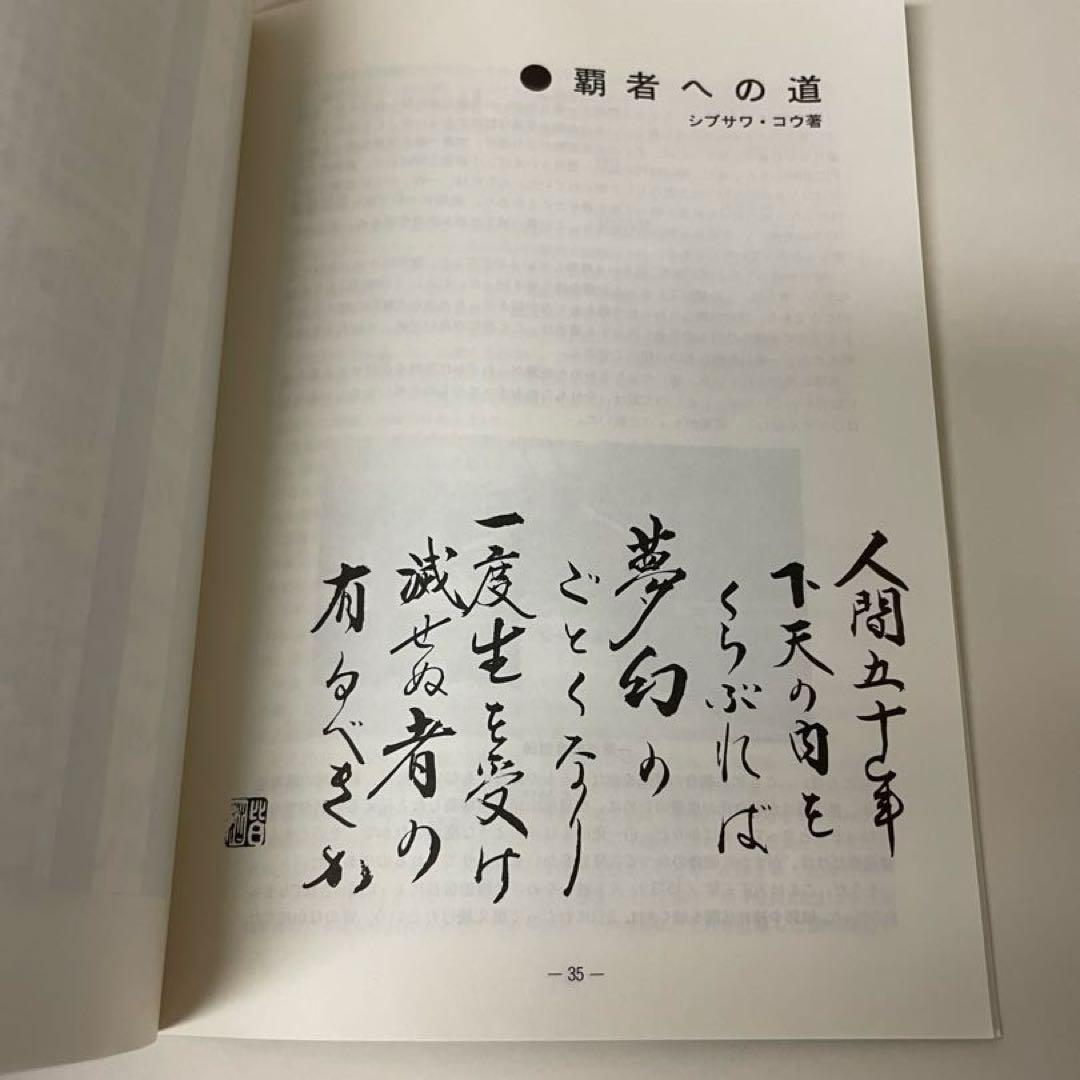 ●覇者への道
シブサワ・コウ著
人間五十年
下天の内を
くらぶれば
夢幻の
ごとくなり
一度生を受け
滅せぬ者の
有るべきか
— 35 —